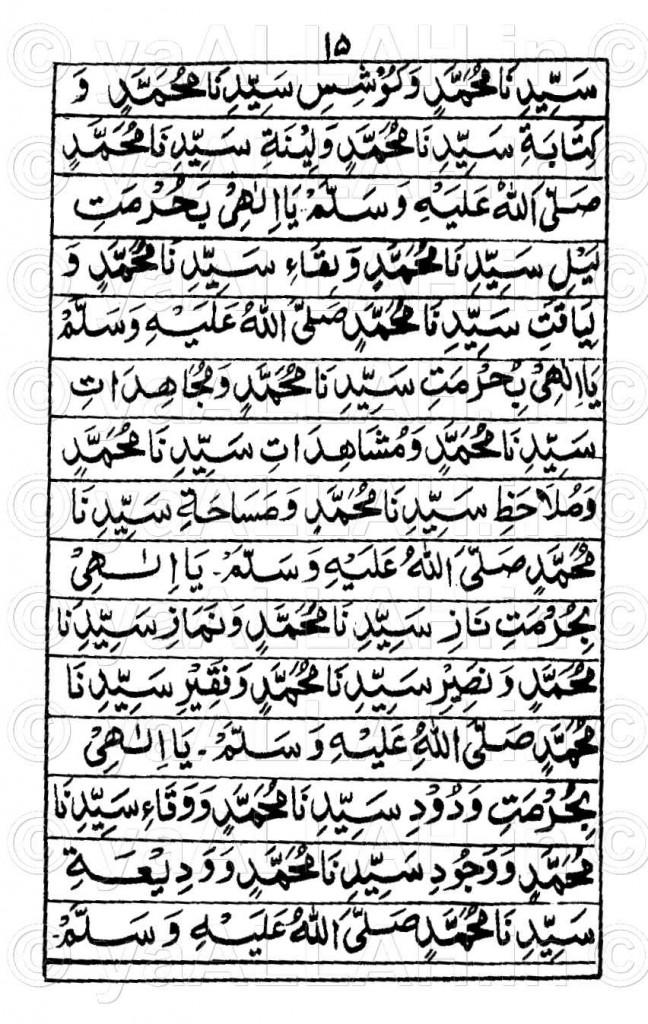 ١٥
سَيِّدِنَا مُحَمَّدٍ وَكَوْشِسِ سَيِّدِنَا مُحَمَّدٍ وَ
كِتَابَةِ سَيِّدِنَا مُحَمَّدٍ وَلِيْنَةِ سَيِّدِنَا مُحَمَّدٍ
صَلَّى اللهُ عَلَيْهِ وَسَلَّمْ يَا اِلٰهِىْ بِحُرْمَتِ
لَيْلِ سَيِّدِنَا مُحَمَّدٍ وَ لِقَاءِ سَيِّدِنَا مُحَمَّدٍ وَ
لِيَاقَتِ سَيِّدِنَا مُحَمَّدٍ صَلَّى اللهُ عَلَيْهِ وَسَلَّمْ
يَا اِلٰهِىْ بِحُرْمَتِ سَيِّدِنَا مُحَمَّدٍ وَمُجَاهِدَاتِ
سَيِّدِنَا مُحَمَّدٍ وَمُشَاهِدَاتِ سَيِّدِنَا مُحَمَّدٍ
وَمُلَاحَظِ سَيِّدِنَا مُحَمَّدٍ وَمَسَاحَةِ سَيِّدِنَا
مُحَمَّدٍ صَلَّى اللهُ عَلَيْهِ وَسَلَّمْ۔ يَا اِلٰـهِىْ
بِحُرْمَتِ نَازِ سَيِّدِنَا مُحَمَّدٍ وَنَمَازِ سَيِّدِنَا
مُحَمَّدٍ وَنَصِيْرِ سَيِّدِنَا مُحَمَّدٍ وَنَقِيْرِ سَيِّدِنَا
مُحَمَّدٍ صَلَّى اللهُ عَلَيْهِ وَسَلَّمْ۔ يَا اِلٰـهِىْ
بِحُرْمَتِ وَدُوْدِ سَيِّدِنَا مُحَمَّدٍ وَوَقَاءِ سَيِّدِنَا
مُحَمَّدٍ وَوَجُوْدِ سَيِّدِنَا مُحَمَّدٍ وَوَدِيْعَةِ
سَيِّدِنَا مُحَمَّدٍ صَلَّى اللهُ عَلَيْهِ وَسَلَّمْ۔
© yaALLAH.in ©